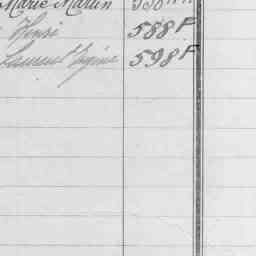 Marie Martin
Henri 588 F
Laurent Virginie 598 F